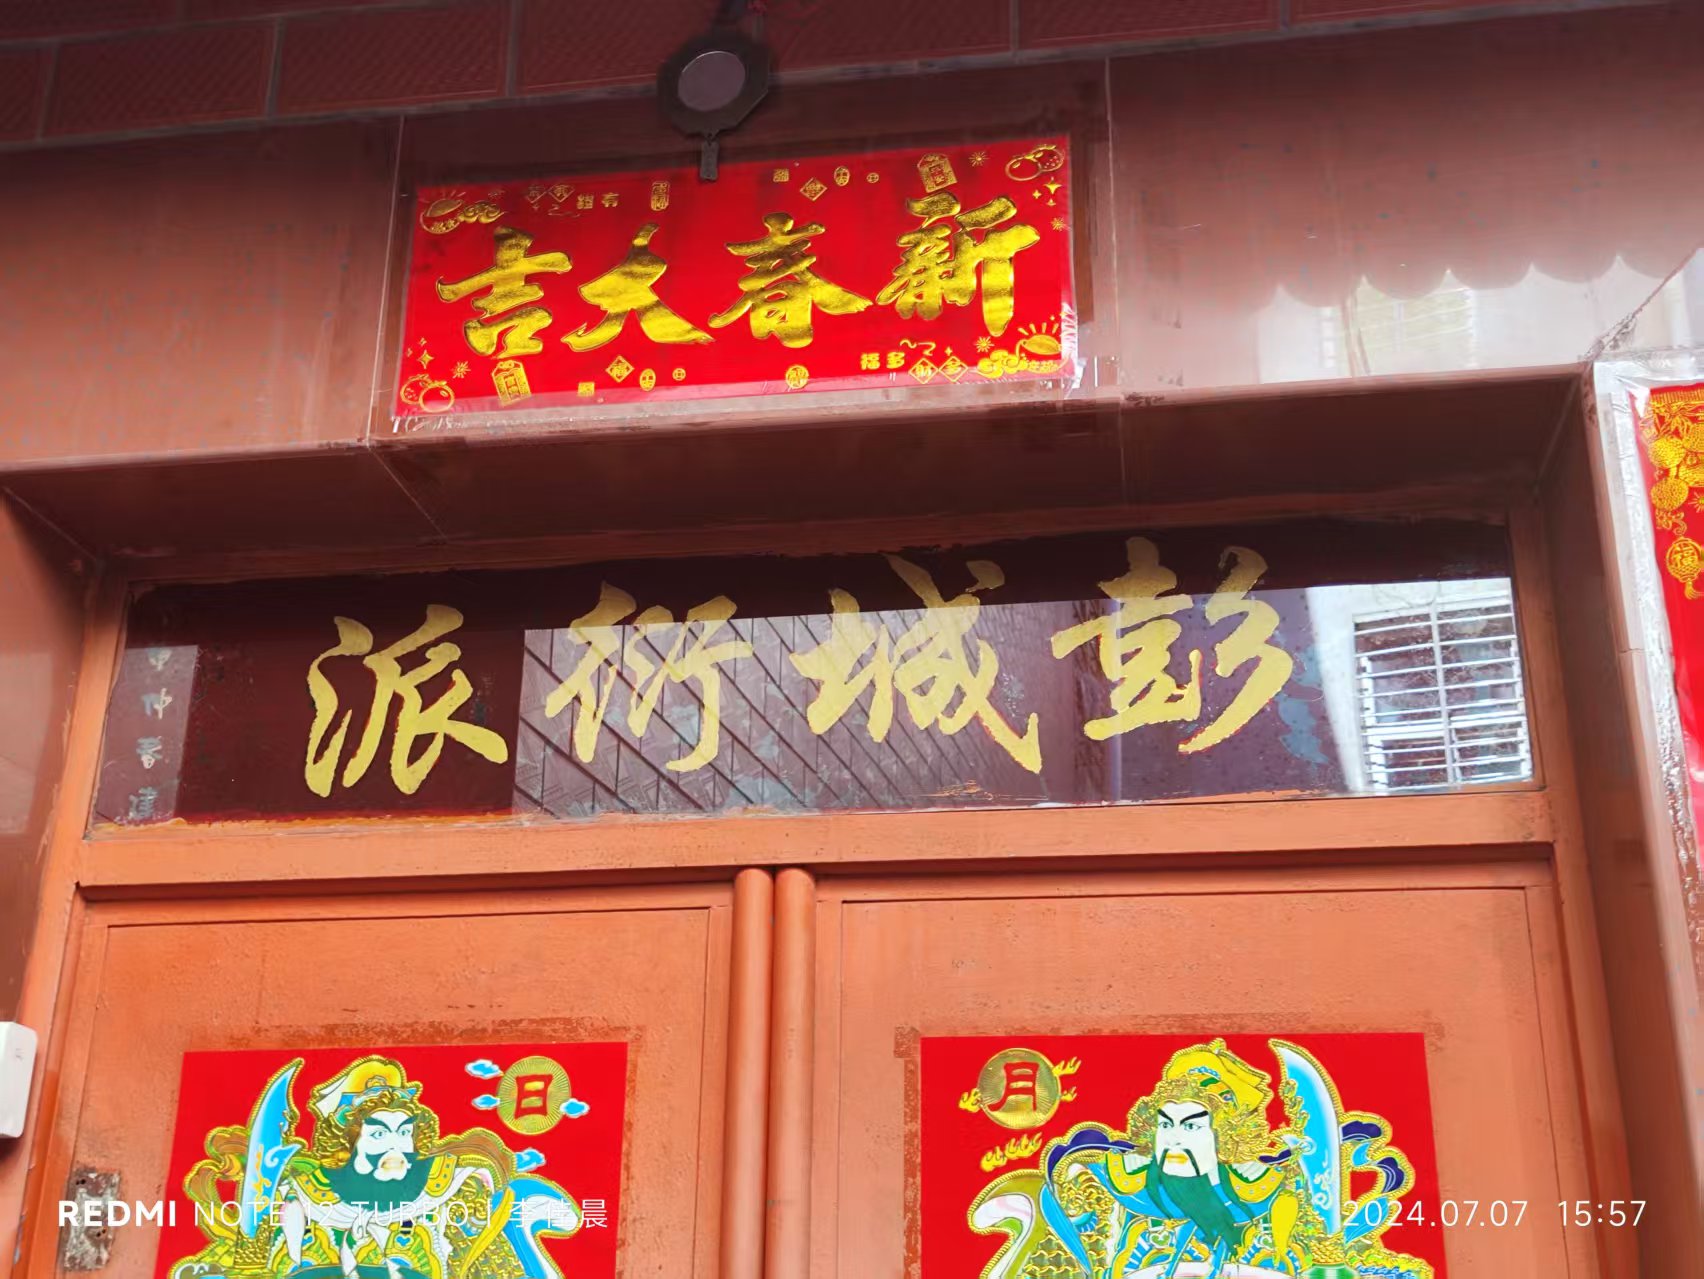 新春大吉
福多
财多
彭城衍派
日
月
REDMI NOTE 12 TURBO | 李佳晨
2024.07.07 15:57